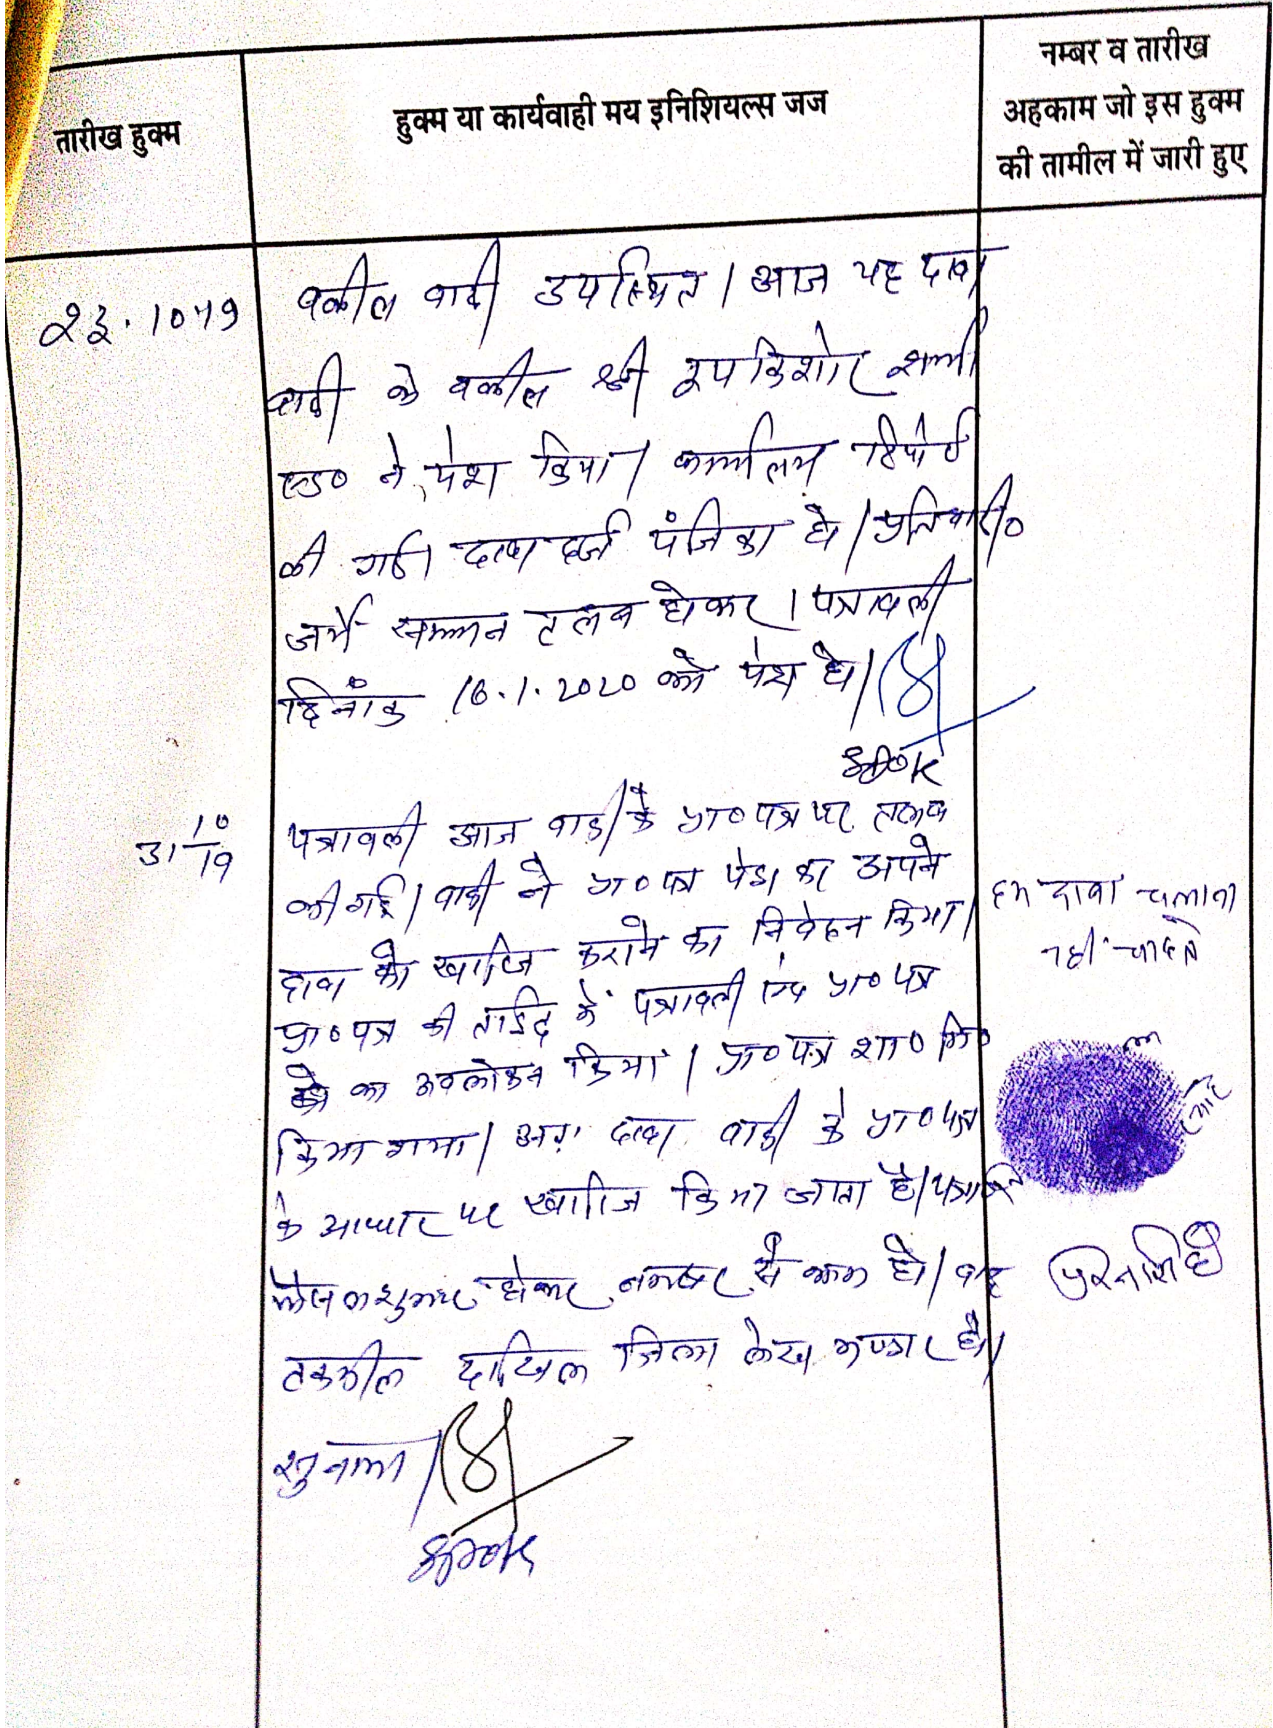 तारीख हुक्म
हुक्म या कार्यवाही मय इनिशियल्स जज
नम्बर व तारीख
अहकाम जो इस हुक्म
की तामील में जारी हुए
23.10.19
वकील वादी उपस्थित। आज यह दावा
वादी के वकील श्री रूपकिशोर शर्मा
एड० ने पेश किया। कार्यालय रिपोर्ट
की गई। दावा दर्ज पंजिका हो। प्रतिवादी०
जर्ये सम्मन तलब होकर। पत्रावली
दिनांक 16.1.2020 को पेश हो।
31 10/19
पत्रावली आज वादी के प्रा०पत्र पर तलब
की गई। वादी ने प्रा०पत्र पेश कर अपने
दावा को खारिज कराने का निवेदन किया।
प्रा०पत्र की ताईद में पत्रावली एवं प्रा०पत्र
का अवलोकन किया। प्रा०पत्र शा० मि०
किया गया। अतः दावा वादी के प्रा०पत्र
के आधार पर खारिज किया जाता है। पत्रावली
होकर नम्बर से कम हो। बाद
तकमील दाखिल जिला लेख भण्डार हो।
सुनाया।
हम दावा चलाना
नहीं चाहते